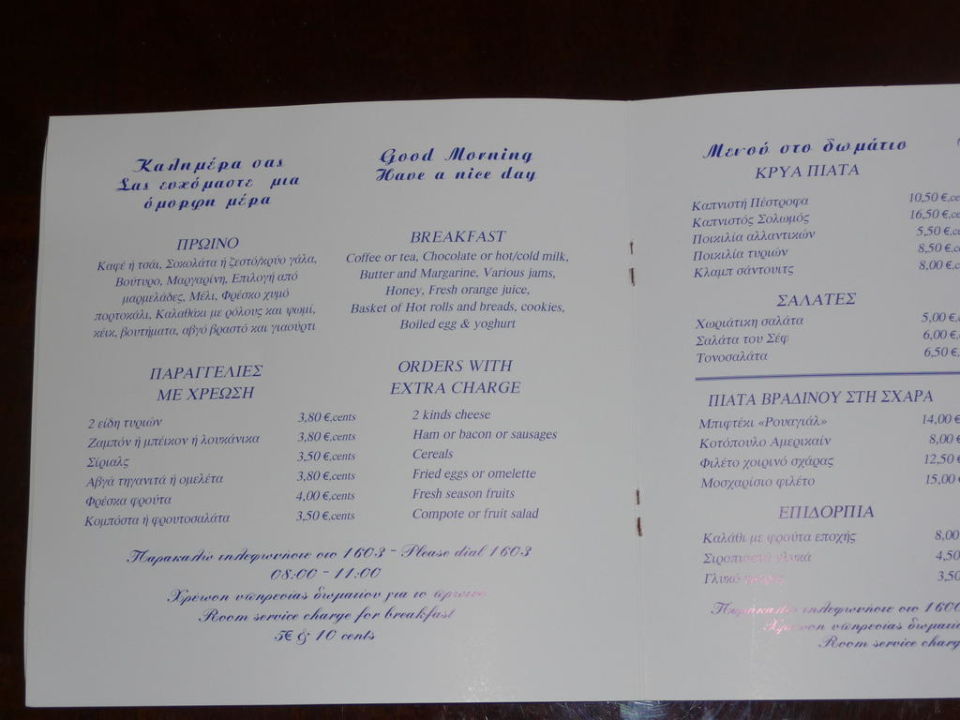 Καλημέρα σας
Σας ευχόμαστε μια
όμορφη μέρα
Good Morning
Have a nice day
ΠΡΩΙΝΟ
Καφέ ή τσάι, Σοκολάτα ή ζεστό/κρύο γάλα,
Βούτυρο, Μαργαρίνη, Επιλογή από
μαρμελάδες, Μέλι, Φρέσκο χυμό
πορτοκάλι, Καλαθάκι με ρόλους και ψωμί,
κέικ, βουτήματα, αβγό βραστό και γιαούρτι
BREAKFAST
Coffee or tea, Chocolate or hot/cold milk,
Butter and Margarine, Various jams,
Honey, Fresh orange juice,
Basket of Hot rolls and breads, cookies,
Boiled egg & yoghurt
ΠΑΡΑΓΓΕΛΙΕΣ
ΜΕ ΧΡΕΩΣΗ
ORDERS WITH
EXTRA CHARGE
2 είδη τυριών 3,80 €,cents 2 kinds cheese
Ζαμπόν ή μπέικον ή λουκάνικα 3,80 €,cents Ham or bacon or sausages
Σίριαλς 3,50 €,cents Cereals
Αβγά τηγανιτά ή ομελέτα 3,80 €,cents Fried eggs or omelette
Φρέσκα φρούτα 4,00 €,cents Fresh season fruits
Κομπόστα ή φρουτοσαλάτα 3,50 €,cents Compote or fruit salad
Παρακαλώ τηλεφωνήστε στο 1603 - Please dial 1603
08:00 - 11:00
Χρέωση υπηρεσίας δωματίου για το πρωινό
Room service charge for breakfast
5€ & 10 cents
Μενού στο δωμάτιο
ΚΡΥΑ ΠΙΑΤΑ
Καπνιστή Πέστροφα 10,50 €,ce
Καπνιστός Σολωμός 16,50 €,ce
Ποικιλία αλλαντικών 5,50 €,ce
Ποικιλία τυριών 8,50 €,ce
Κλαμπ σάντουιτς 8,00 €,ce
ΣΑΛΑΤΕΣ
Χωριάτικη σαλάτα 5,00 €,
Σαλάτα του Σέφ 6,00 €,
Τονοσαλάτα 6,50 €,
ΠΙΑΤΑ ΒΡΑΔΙΝΟΥ ΣΤΗ ΣΧΑΡΑ
Μπιφτέκι «Ρουαγιάλ» 14,00 €
Κοτόπουλο Αμερικαίν 8,00 €
Φιλέτο χοιρινό σχάρας 12,50 €
Μοσχαρίσιο φιλέτο 15,00 €
ΕΠΙΔΟΡΠΙΑ
Καλάθι με φρούτα εποχής 8,00
Σιροπιαστά γλυκά 4,50
Γλυκό 3,50
Παρακαλώ τηλεφωνήστε στο 1600
Χρέωση υπηρεσίας δωματίο
Room service charg